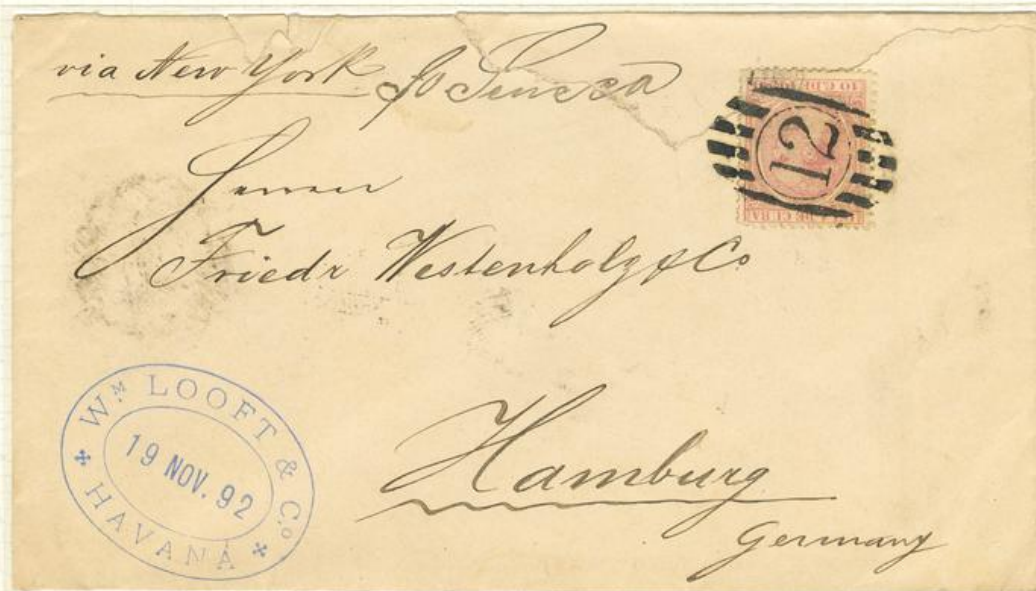 via New York p Seneca
Herren
Friedr Westenholz & Co
Hamburg
Germany
10 C. DE
12
DE CUBA
WM LOOFT & Co
19 NOV. 92
HAVANA